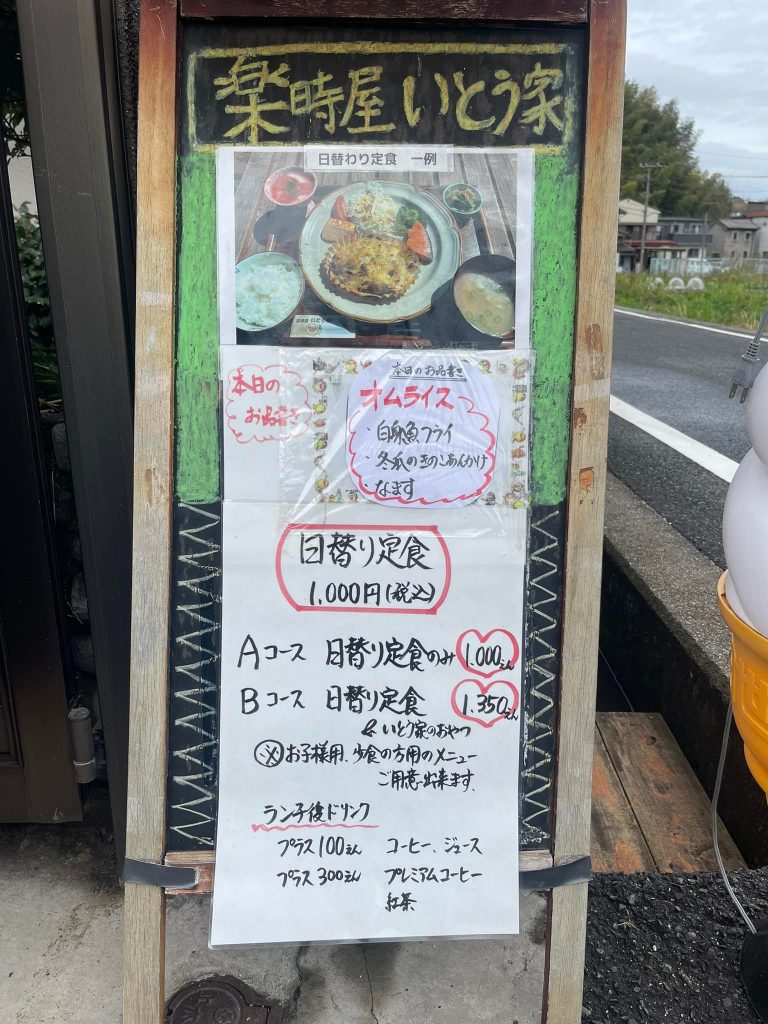 楽時屋 いとう家
日替わり定食 一例
本日の
お品書き
本日のお品書き
オムライス
・白身魚フライ
・冬瓜のきのこあんかけ
・なます
日替り定食
1,000円(税込)
Aコース 日替り定食のみ 1.000えん
Bコース 日替り定食 1.350えん
& いとう家のおやつ
※お子様用、少食の方用のメニュー
ご用意出来ます。
ランチ後ドリンク
プラス100えん コーヒー、ジュース
プラス300えん プレミアムコーヒー
紅茶